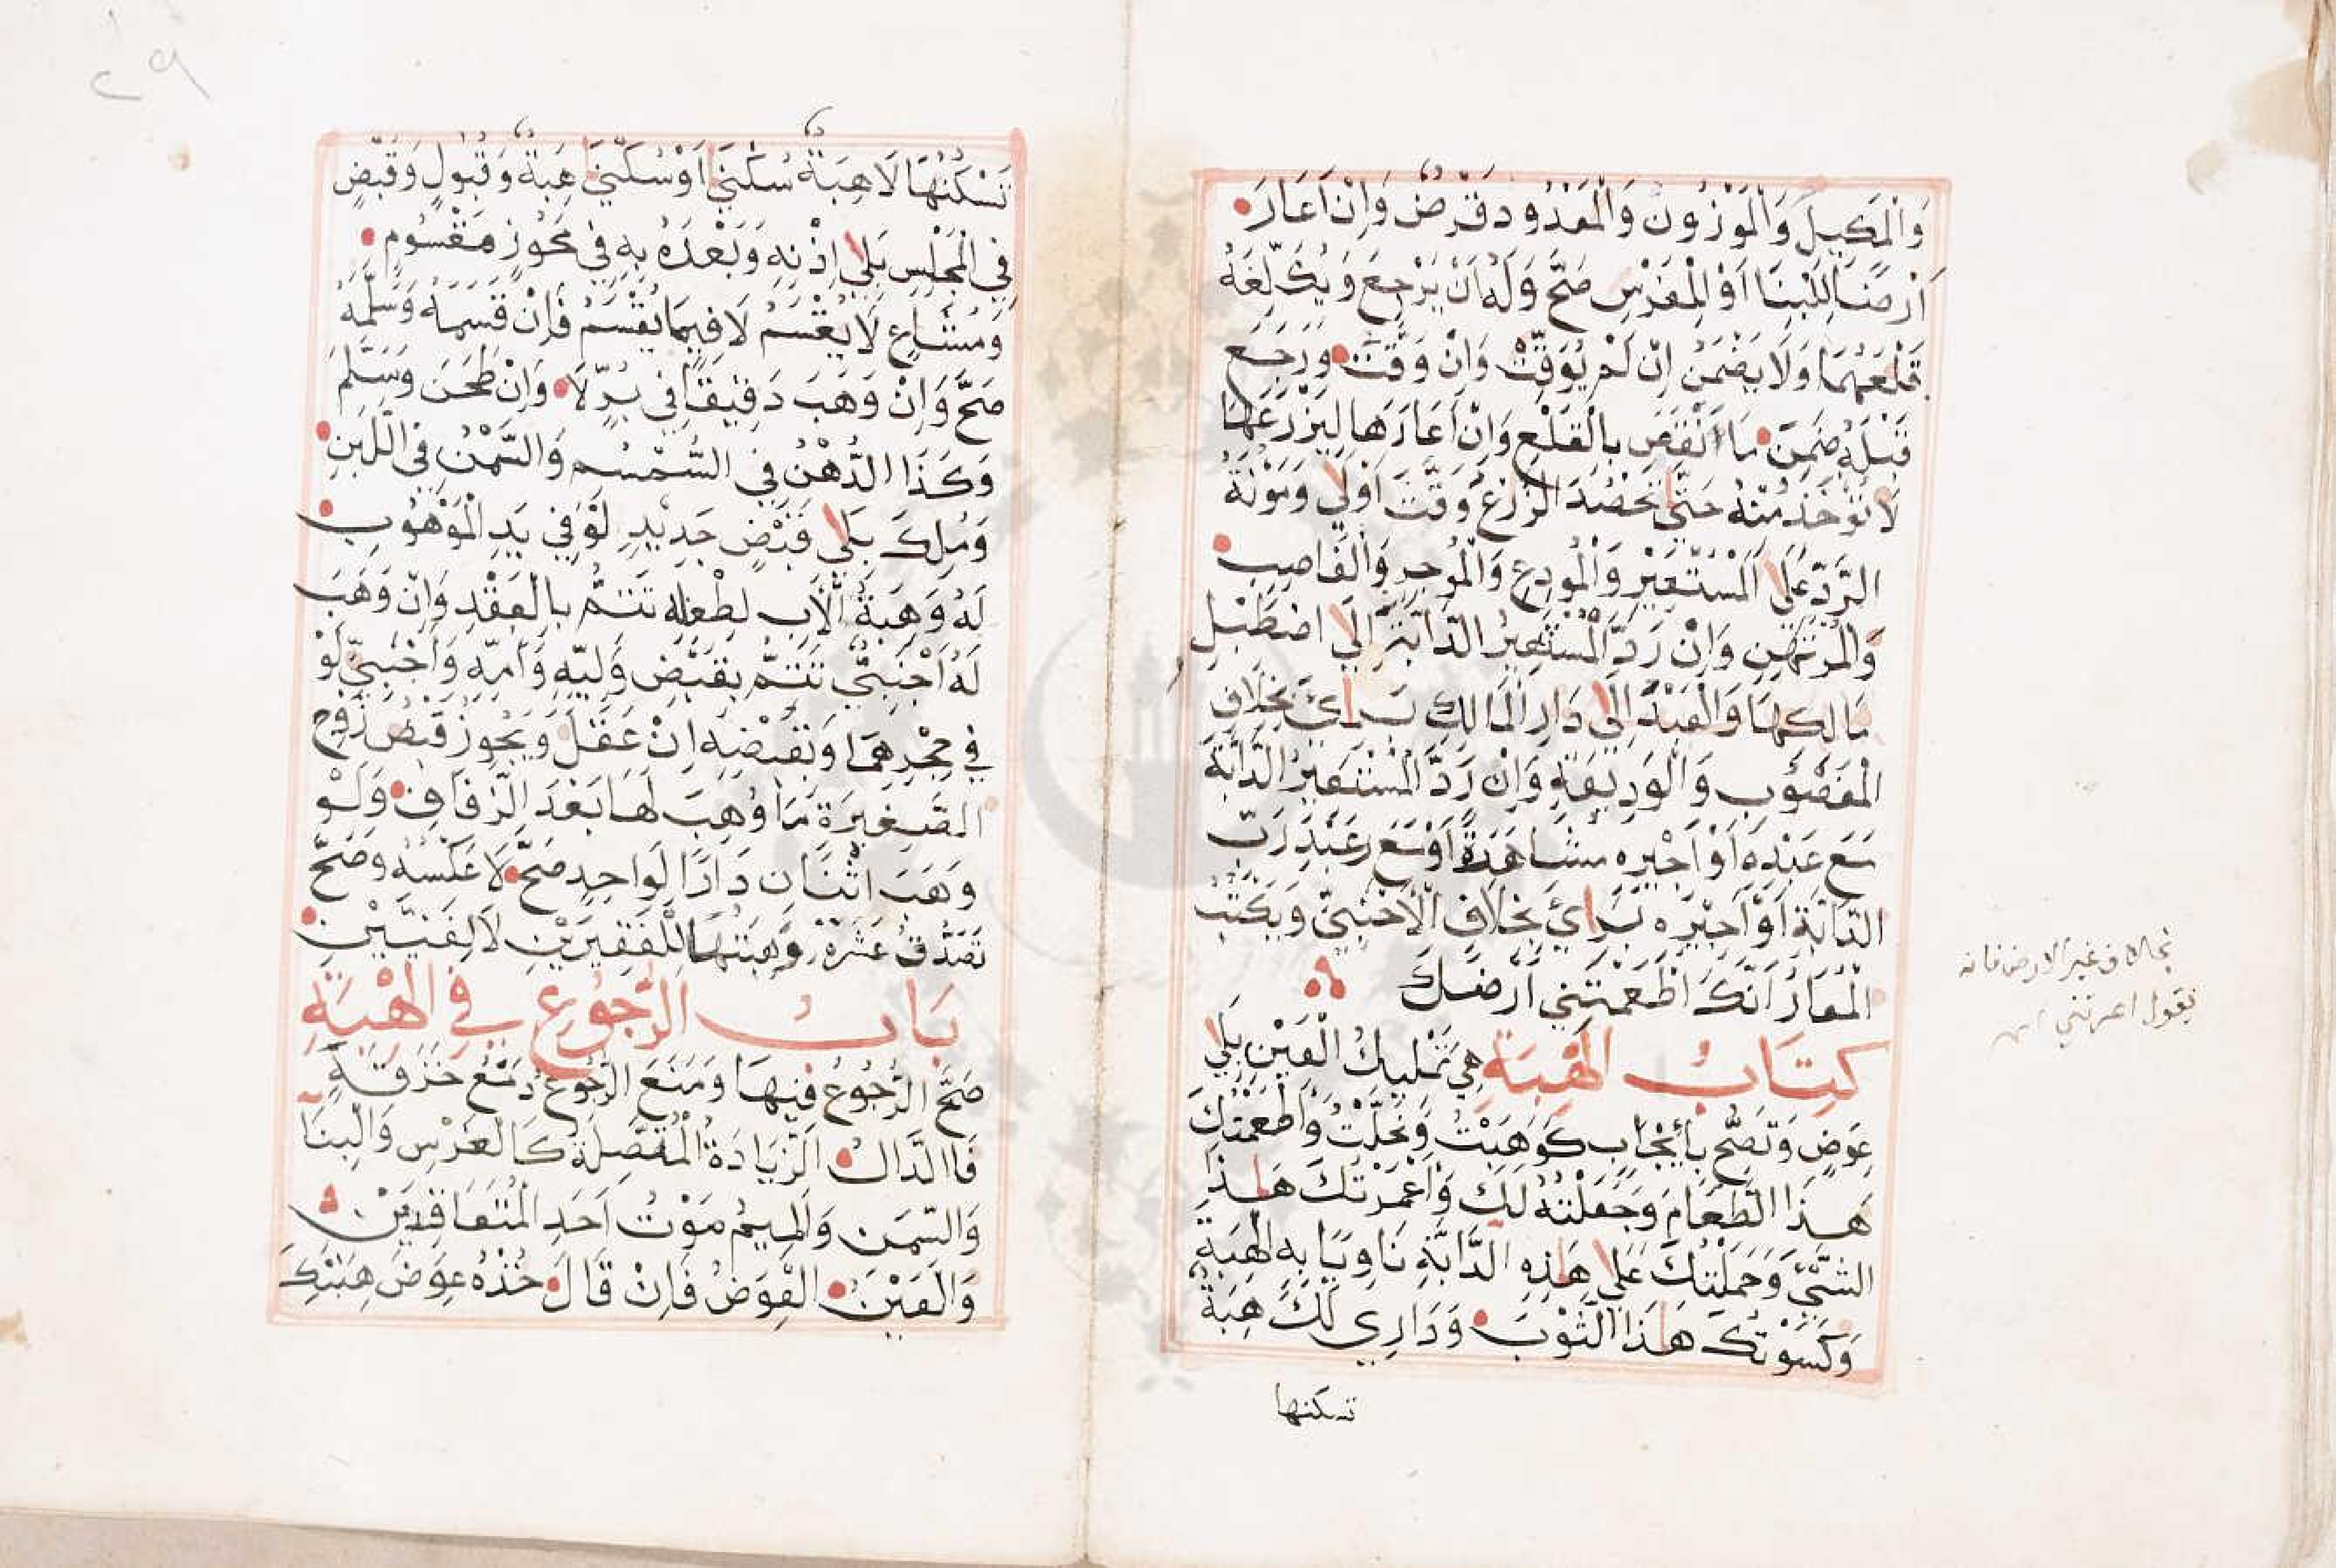 وَالْمَكِيلِ وَالْمَوْزُونِ وَالْمَعْدُودِ قَرْضٌ وَإِنْ أَعَارَ
أَرْضًا لِلْبِنَا أَوْ الْغَرْسِ صَحَّ وَلَهُ أَنْ يَرْجِعَ وَيُكَلِّفَهُ
قَلْعَهُمَا وَلَا يَضْمَنُ إِنْ لَمْ يُوَقِّتْ وَإِنْ وَقَّتَ وَرَجَعَ
قَبْلَهُ ضَمِنَ مَا انْقَصَ بِالْقَلْعِ وَإِنْ أَعَارَهَا لِيَزْرَعَهَا
لَا تُؤْخَذُ مِنْهُ حَتَّى يَحْصُدَ الزَّرْعَ وَقَّتَ أَوْ لَا وَمَوْنَةُ
الرَّدِّ عَلَى الْمُسْتَعِيْرِ وَالْمُودِعِ وَالْمُوجِرِ وَالْغَاصِبِ
وَالْمُرْتَهِنِ وَإِنْ رَدَّ الْمُسْتَعِيرُ الدَّابَّةَ إِلَى اصْطَبْلِ
مَالِكِهَا وَالْعَبْدَ إِلَى دَارِ الْمَالِكِ بَرِئَ بِخِلَافِ
الْمَغْصُوبِ وَالْوَدِيعَةِ وَإِنْ رَدَّ الْمُسْتَعِيرُ الدَّابَّةَ
مَعَ عَبْدِهِ أَوْ أَجِيْرِهِ مُشَاهَرَةً أَوْ مَعَ عَبْدِ رَبِّ
الدَّابَّةِ أَوْ أَجِيْرِهِ بَرِئَ بِخِلَافِ الْأَجْنَبِيِّ وَيَكْتُبُ
الْمُعَارُ أَنَّكَ أَطْعَمْتَنِي أَرْضَكَ
كِتَابُ الْهِبَةِ هِيَ تَمْلِيكُ الْعَيْنِ بِلَا
عِوَضٍ وَتَصِحُّ بِأَيْجَابٍ كَوَهَبْتُ وَنَحَلْتُ وَأَطْعَمْتُكَ
هَذَا الطَّعَامَ وَجَعَلْتُهُ لَكَ وَأَعْمَرْتُكَ هَذَا
الشَّيْءَ وَحَمَلْتُكَ عَلَى هَذِهِ الدَّابَّةِ نَاوِيًا بِهِ الْهِبَةَ
وَكَسَوْتُكَ هَذَا الثَّوْبَ وَدَارِي لَكَ هِبَةً
تسكنها
بخلاف غير الارض فانه
يقول اعرتني
تَسْكُنُهَا لَا هِبَةً سُكْنَى أَوْ سُكْنَى هِبَةً وَقُبُولٍ وَقَبْضٍ
فِي الْمَجْلِسِ بِلَا إِذْنِهِ وَبَعْدَهُ بِهِ فِي مَحُوزٍ مَقْسُومٍ
وَمُشَاعٍ لَا يُقْسَمُ لَا فِيمَا يُقْسَمُ فَإِنْ قَسَمَهُ وَسَلَّمَهُ
صَحَّ وَإِنْ وَهَبَ دَقِيقًا فِي بُرٍّ لَا وَإِنْ طَحَنَ وَسَلَّمَ
وَكَذَا الدُّهْنُ فِي السُّمْسُمِ وَالسَّمْنُ فِي اللَّبَنِ
وَمُلِكَ بِلَا قَبْضٍ جَدِيدٍ لَوْ فِي يَدِ الْمَوْهُوبِ
لَهُ وَهِبَةُ الْأَبِ لِطِفْلِهِ تَتِمُّ بِالْعَقْدِ وَإِنْ وَهَبَ
لَهُ أَجْنَبِيٌّ تَتِمُّ بِقَبْضِ وَلِيِّهِ وَأُمِّهِ وَأَجْنَبِيٍّ لَوْ
فِي حِجْرِهِمَا وَبِقَبْضِهِ إِنْ عَقَلَ وَيَجُوزُ قَبْضُ زَوْجِ
الصَّغِيرَةِ مَا وُهِبَ لَهَا بَعْدَ الزِّفَافِ وَلَوْ
وَهَبَ اثْنَانِ دَارًا لِوَاحِدٍ صَحَّ لَا عَكْسُهُ وَصَحَّ
تَصَدُّقُ عَشَرَةٍ وَهِبَتُهَا لِلْفَقِيرَيْنِ لَا لِغَنِيَّيْنِ
بَابُ الرُّجُوعِ فِي الْهِبَةِ
صَحَّ الرُّجُوعُ فِيهَا وَمَنَعَ الرُّجُوعَ دَمْعُ خَزَقَهْ
فَالدَّالُ الزِّيَادَةُ الْمُتَّصِلَةُ كَالْغَرْسِ وَالْبِنَا
وَالسِّمَنِ وَالْمِيمُ مَوْتُ أَحَدِ الْمُتَعَاقِدَيْنِ
وَالْعَيْنُ الْعِوَضُ فَإِنْ قَالَ خُذْهُ عِوَضَ هِبَتِكَ